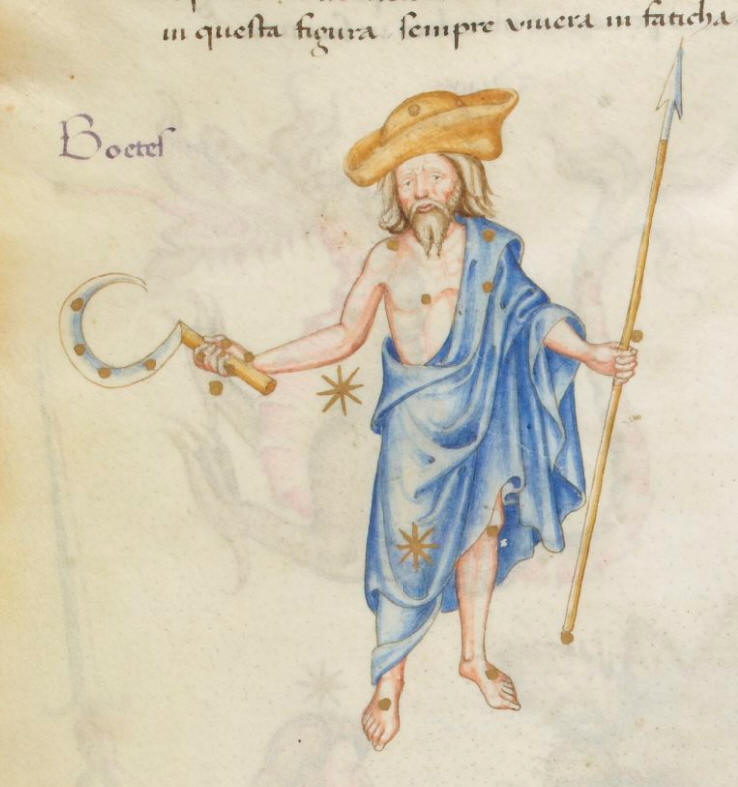 in questa figura sempre vivera in faticha
Boetes